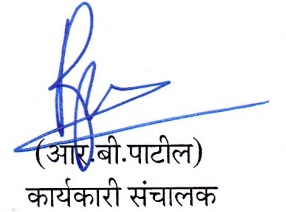 (आर.बी.पाटील)
कार्यकारी संचालक